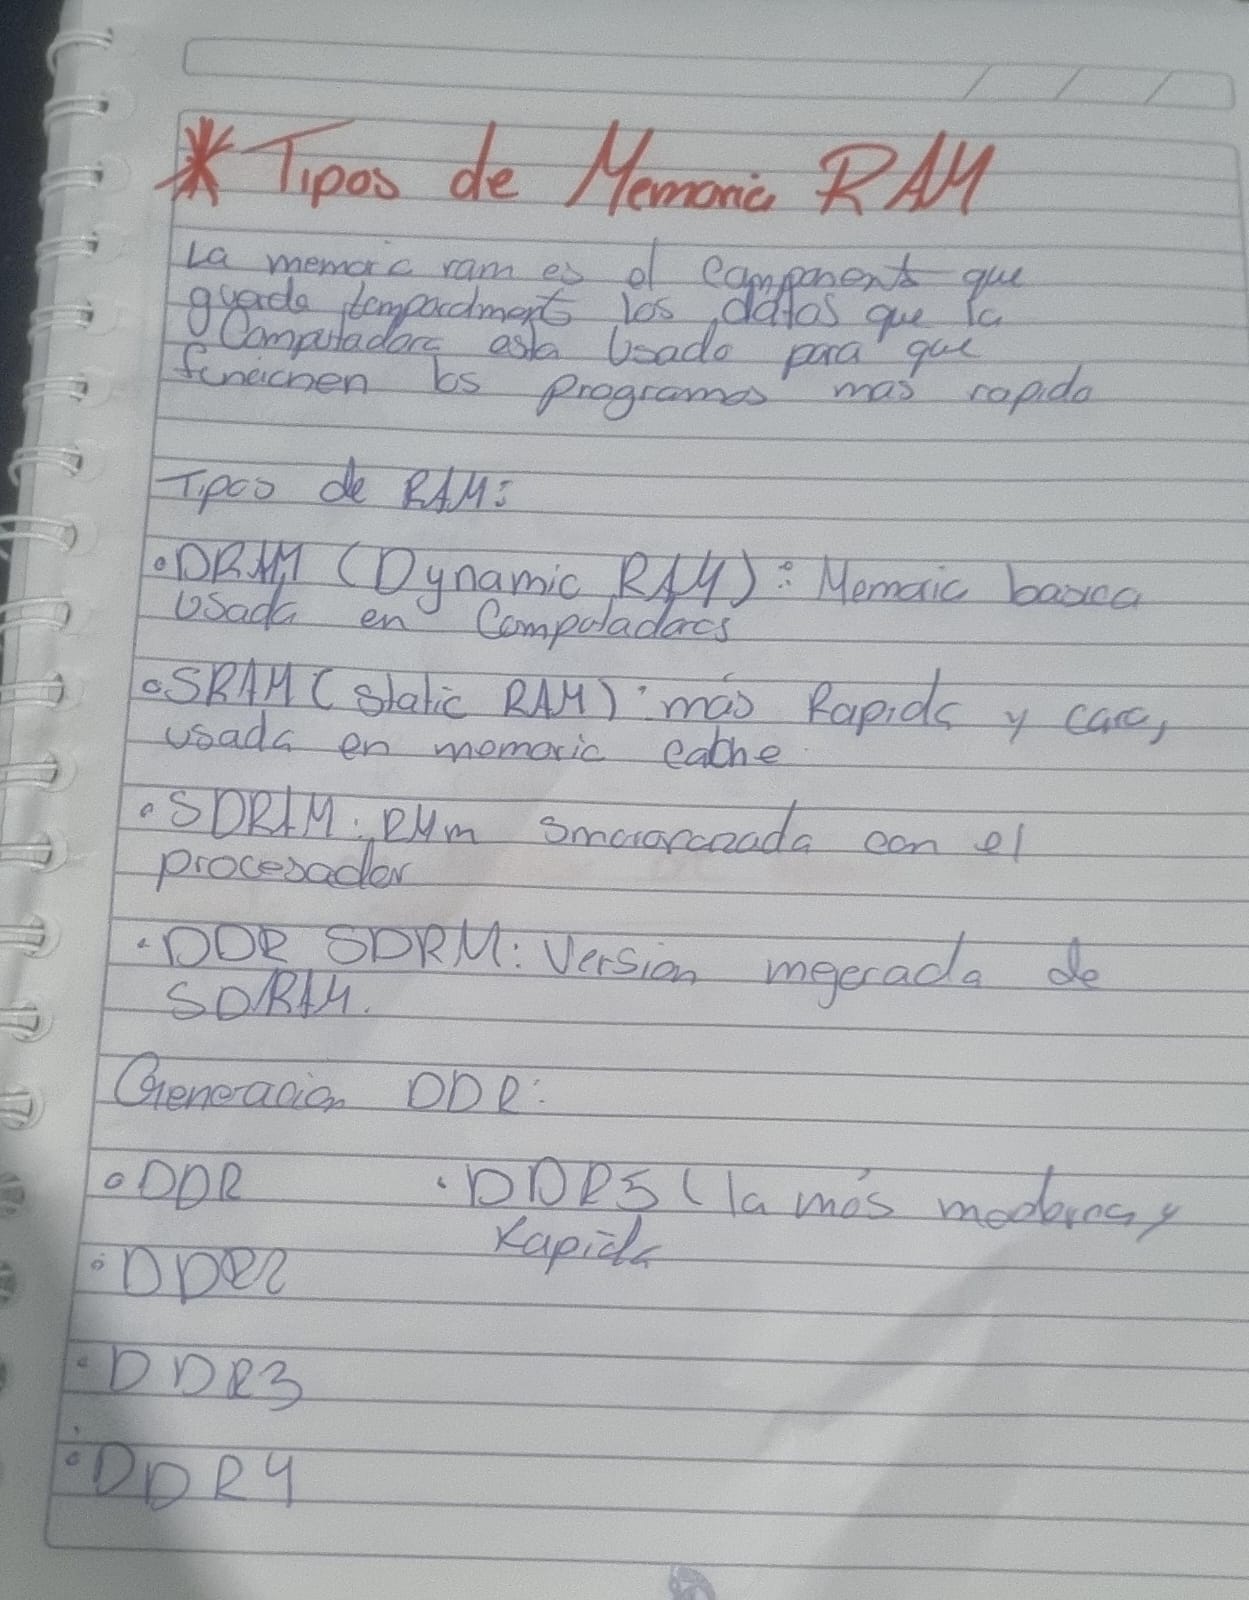 * Tipos de Memoria RAM
La memoria ram es el Componente que
guarda temporalmente los datos que la
Computadora esta Usado para que
funcionen los programas mas rapido
Tipos de RAM:
• DRAM (Dynamic RAM): Memoria basica
Usada en Computadoras
• SRAM (Static RAM): más Rapida y cara,
usada en memoria cache
• SDRAM: RAM sincronizada con el
procesador
• DDR SDRM: Version mejorada de
SDRAM.
Generacion DDR:
• DDR
• DDR2
• DDR3
• DDR4
• DDR5 (la más moderna y
Rapida